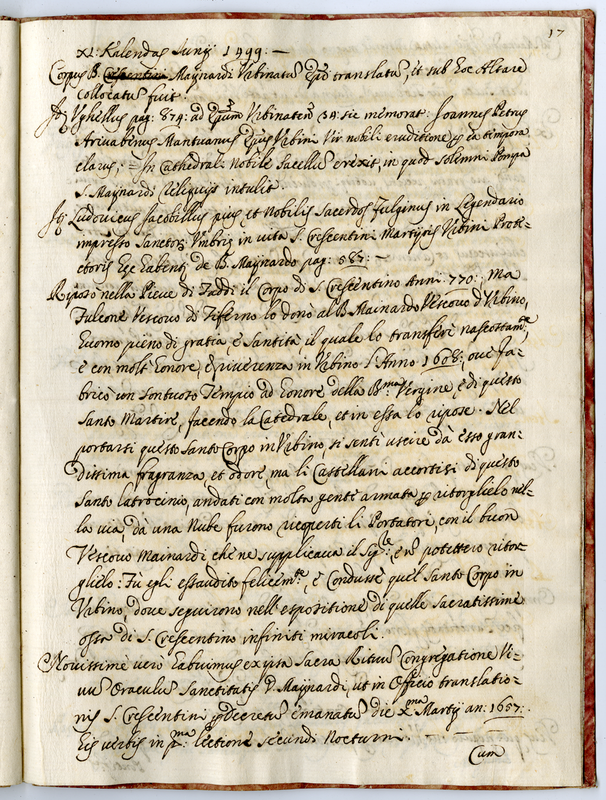 17
XI: Kalendas Junij 1499: —
Corpus B. Crescentini Maynardi Urbinatu Epi translatu, et sub hoc Altare
collocatu fuit.
Ughellus pag: 874: ad Epum Urbinaten 34: sic memorat: Joannes Petrus
Arivabenus Mantuanus Epus Urbini Vir nobili eruditione p ea tempora
clarus; = In Cathedrali Nobile Sacellu erexit, in quod solemni Pompa
S. Maynardi reliquijs intulit.
Ludovicus Jacobillus pius, et Nobilis Sacerdos Fulginus in Legendario
impresso Sanctor Umbriæ in vita S. Crescentini Martyris Urbini Prote-
ctoris hæc habent de B. Maynardo pag: 587: —
Riposò nella Pieve di Saddi il Corpo di S. Crescentino Anni 770: Ma
Fulcone Vescovo di Tiferno lo donò al B. Mainardo Vescovo d'Urbino,
huomo pieno di gratia, e Santità il quale lo transferì nascostam.te
e con molt'honore, e riverenza in Urbino l'Anno 1608: ove fa-
bricò un sontuoso Tempio ad honore della B.ma Vergine, e di questo
Santo Martire, facendo la Catedrale, et in essa lo ripose. Nel
portarsi questo Santo Corpo in Urbino, si sentì uscire dà esso gran-
dissima fragranza, et odore, ma li Castellani accortisi di questo
Santo latrocinio, andati con molta gente armata p ritorglielo nel-
la via, dà una Nube furono ricoperti li Portatori, con il buon
Vescovo Mainardi che ne supplicava il Sig.re e nõ potettero ritor-
glielo: Fu egli essaudito felicem.te, e Condusse quel Santo Corpo in
Urbino, dove seguirono nell'espositione di quelle Sacratissime
ossa di S. Crescentino infiniti miracoli.
Novissime vero habuimus ex ipsa Sacra Rituu Congregatione Vi-
vu Oraculu Sanctitatis D. Maynardi, ut in Officio translatio-
nis S. Crescentini p Decretu emanatu die X.ma Martij an: 1657:
His verbis in p.ma lectione secundi Nocturni.
Cum